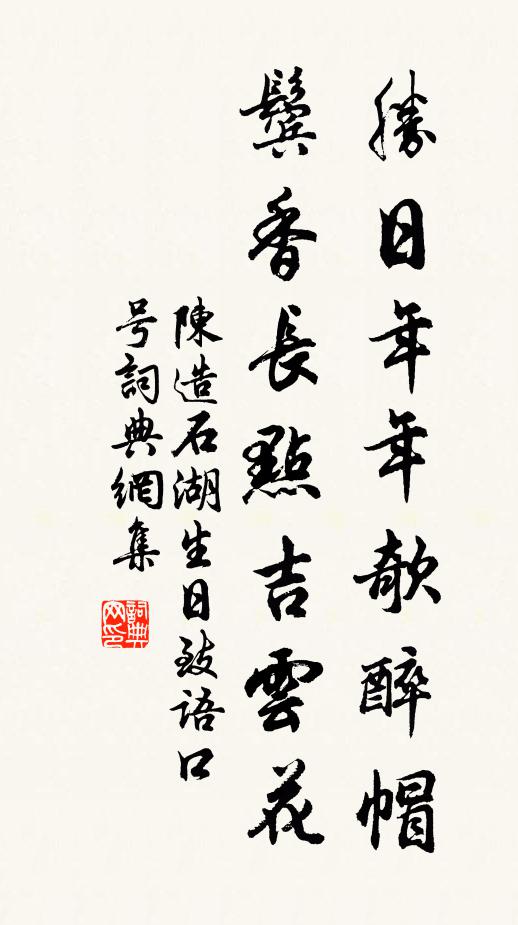 勝日年年欹醉帽
鬓香長點吉雲花
陳造石湖生日致語口
号詞典網集
詞典网印